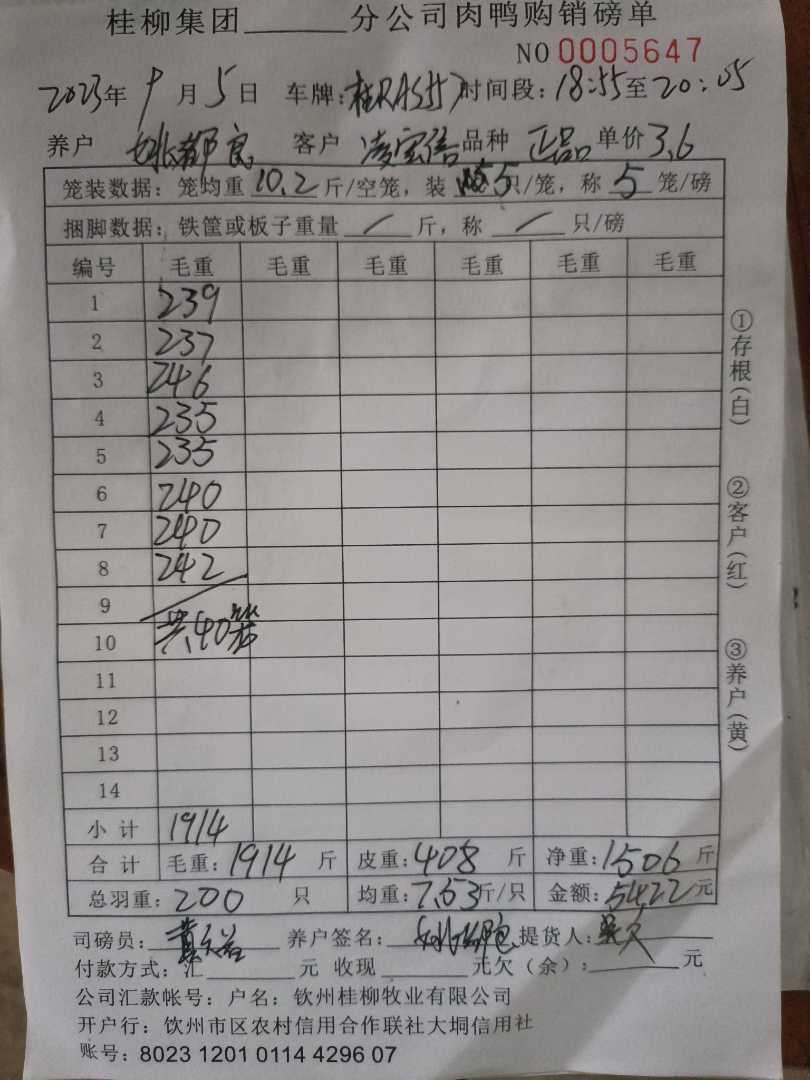 桂柳集团______分公司肉鸭购销磅单
NO 0005647
2023年 9月 5日 车牌: 时间段: 18:55至20:05
养户 姚都良 客户 凌宝信 品种 正品 单价 3.6
笼装数据: 笼均重 10.2 斤/空笼, 装 5 只/笼, 称 5 笼/磅
捆脚数据: 铁筐或板子重量 / 斤, 称 / 只/磅
编号 毛重 毛重 毛重 毛重 毛重 毛重
1 239
2 237
3 246
4 235
5 235
6 240
7 240
8 242
9
10 共40笼
11
12
13
14
小计 1914
合计 毛重: 1914 斤 皮重: 408 斤 净重: 1506 斤
总羽重: 200 只 均重: 7.53斤/只 金额: 5422元
司磅员: 养户签名: 提货人:
付款方式: 汇______元 收现______元欠(余):______元
公司汇款帐号: 户名: 钦州桂柳牧业有限公司
开户行: 钦州市区农村信用合作联社大垌信用社
账号: 8023 1201 0114 4296 07
①存根(白)
②客户(红)
③养户(黄)